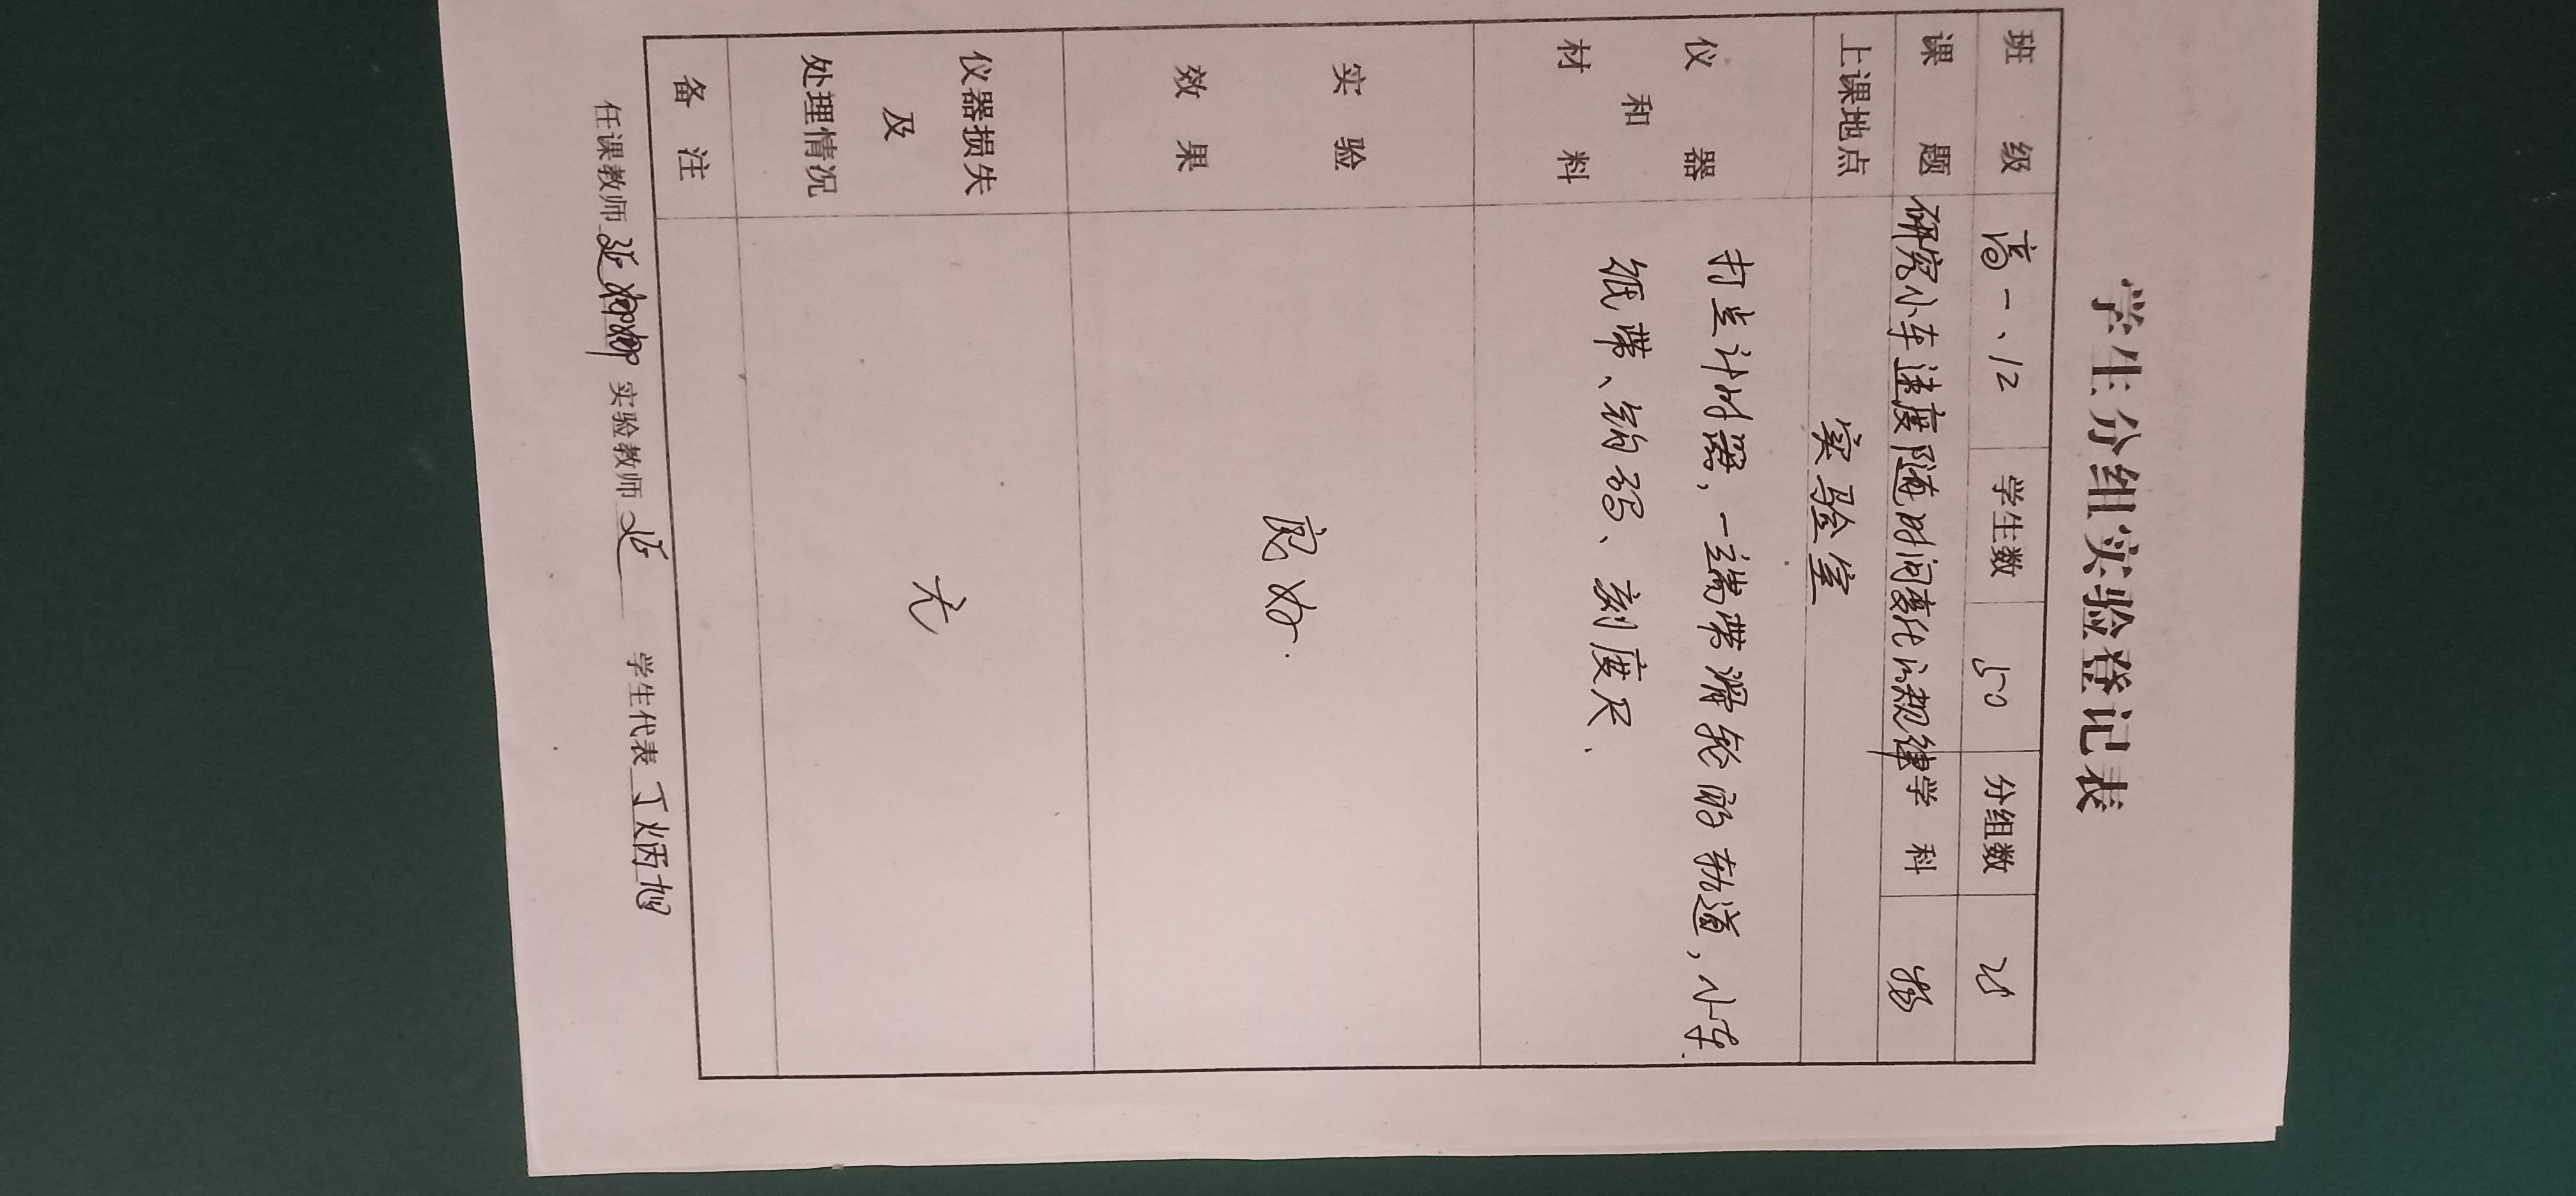 学生分组实验登记表
班级 高一、12 学生数 50 分组数 25
课题 研究小车速度随时间变化的规律 学科 物
上课地点 实验室
仪器和材料 打点计时器, 一端带滑轮的轨道, 小车.
纸带、钩码、刻度尺、
实验效果 良好.
仪器损失及处理情况 无
备注
任课教师 实验教师 学生代表 丁炳旭